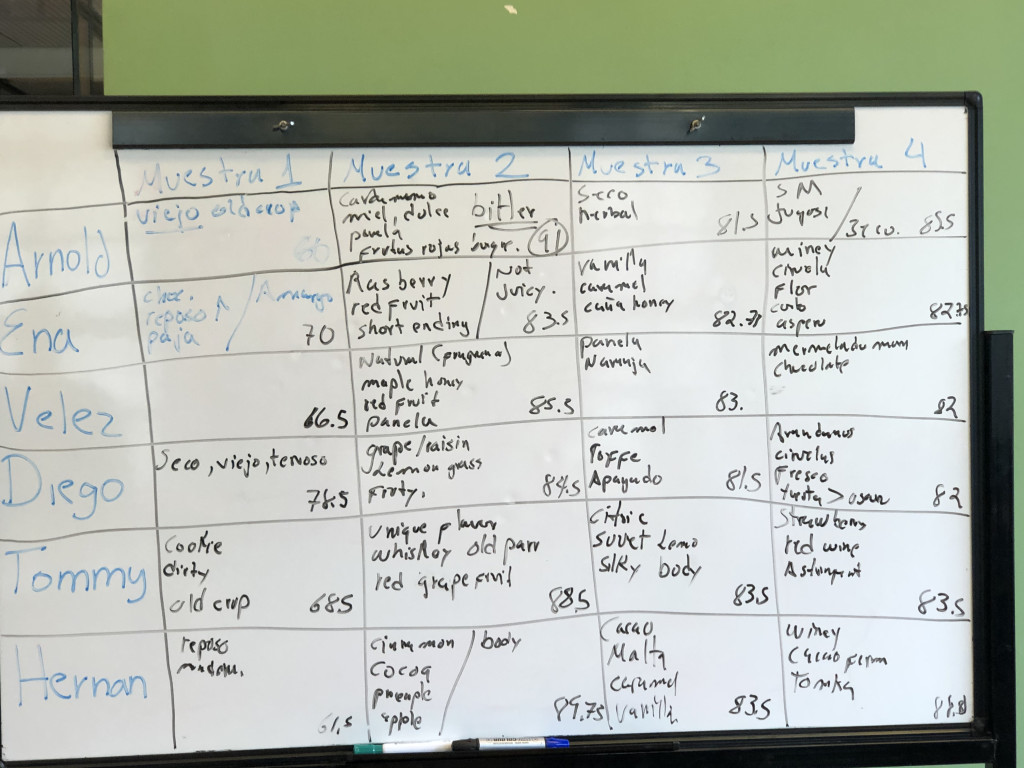 Muestra 1 Muestra 2 Muestra 3 Muestra 4
Arnold
viejo old crop
miel, dulce bitter
panela
frutas rojas 91
Seco
herbal
81.5
SM
Jugoso / Seco.
Ena
choc. / Amargo
reposo ↑
paja
70
Rasberry / Not
red fruit Juicy.
short ending 83.5
vanilla
caramel
caña honey
82.75
winey
ciruela
Flor
82.75
Velez
66.5
Natural
maple honey
red fruit
panela
85.5
panela
Naranja
83.
mermelada
chocolate
82
Diego
Seco, viejo, terroso
78.5
grape/raisin
Lemon grass
Fruty.
84.5
caramel
Toffe
Apagado
81.5
Arandanos
ciruelas
Fresco
82
Tommy
Cookie
dirty
old crop 68.5
unique flavor
whiskey old parr
red grapefruit
88.5
Citric
silky body
83.5
Strawberry
red wine
Astringent
83.5
Hernan
reposo
61.5
cinnamon / body
Cocoa
pineapple
apple
89.75
Cacao
Malta
caramel
vanilla 83.5
winey
Cacao
Tonka